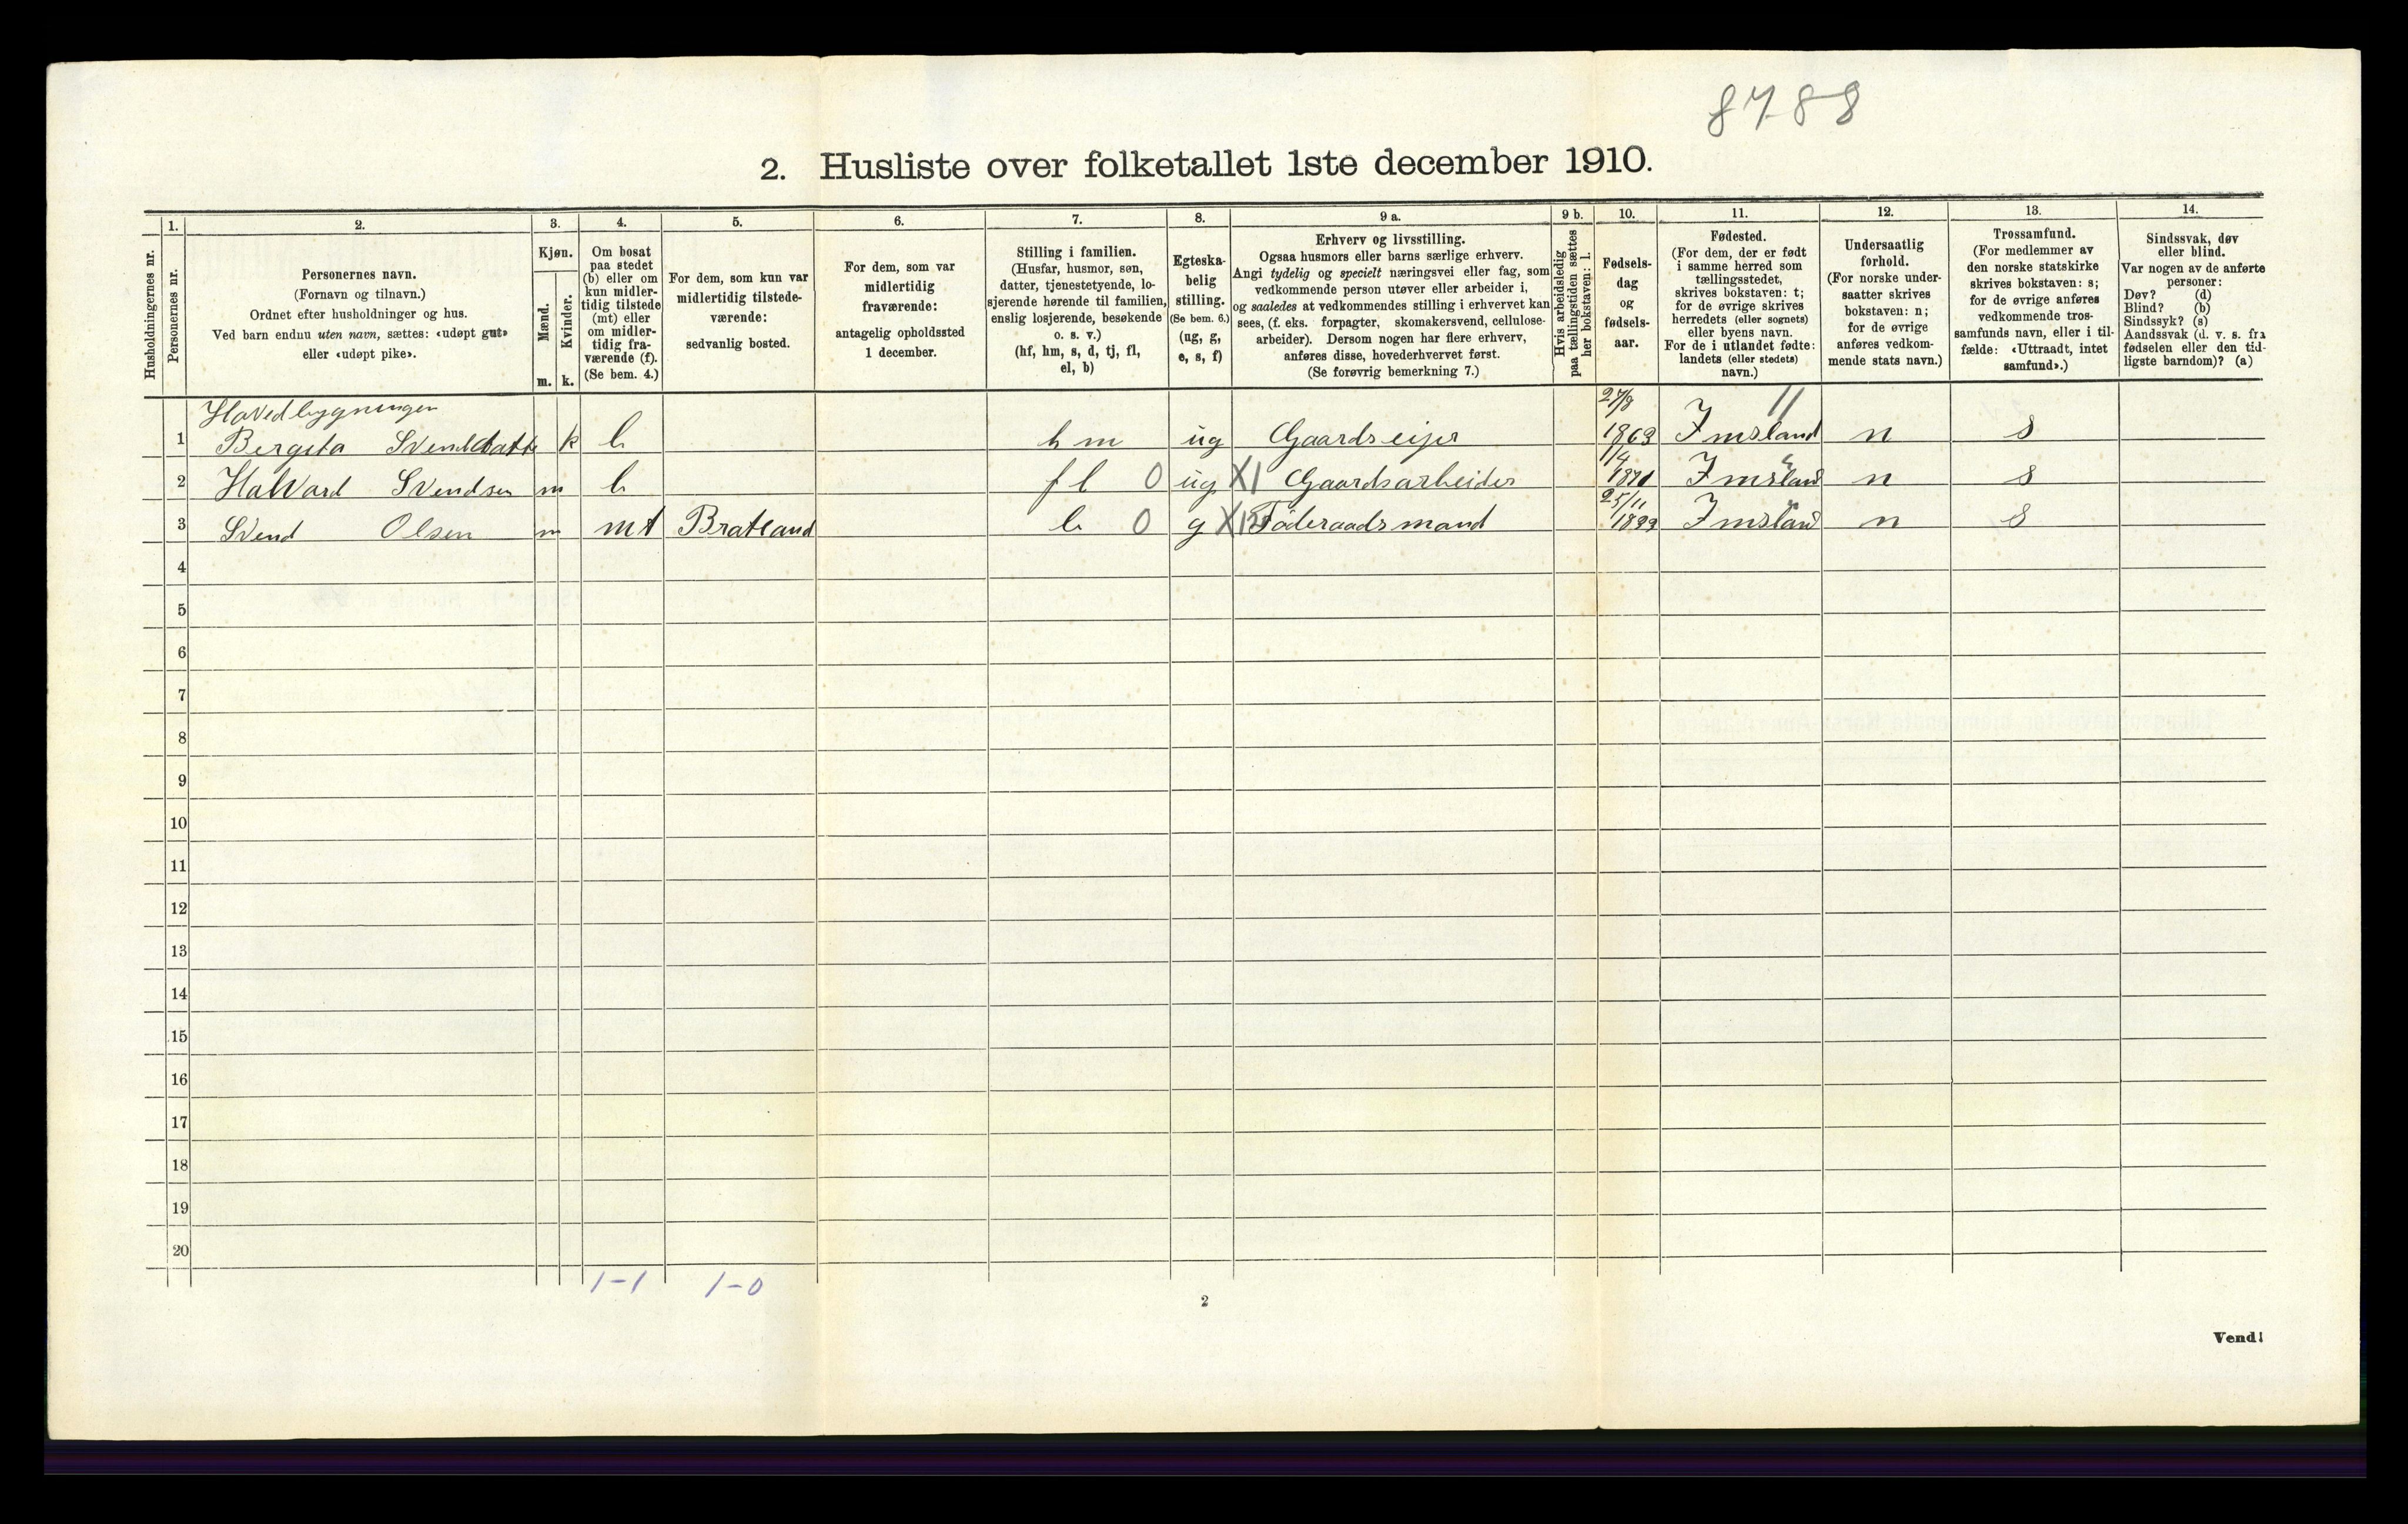 8788
2. Husliste over folketallet 1ste december 1910.
Husholdningernes nr.
1.
Personernes nr.
2.
Personernes navn.
(Fornavn og tilnavn.)
Ordnet efter husholdninger og hus.
Ved barn endnu uten navn, sættes: «udøpt gut»
eller «udøpt pike».
3.
Kjøn.
Mænd.
Kvinder.
m. k.
4.
Om bosat
paa stedet
(b) eller om
kun midler-
tidig tilstede
(mt) eller
om midler-
tidig fra-
værende (f).
(Se bem. 4.)
5.
For dem, som kun var
midlertidig tilstede-
værende:
sedvanlig bosted.
6.
For dem, som var
midlertidig
fraværende:
antagelig opholdssted
1 december.
7.
Stilling i familien.
(Husfar, husmor, søn,
datter, tjenestetyende, lo-
sjerende hørende til familien,
enslig losjerende, besøkende
o. s. v.)
(hf, hm, s, d, tj, fl,
el, b)
8.
Egteska-
belig
stilling.
(Se bem. 6.)
(ug, g,
e, s, f)
9 a.
Erhverv og livsstilling.
Ogsaa husmors eller barns særlige erhverv.
Angi tydelig og specielt næringsvei eller fag, som
vedkommende person utøver eller arbeider i,
og saaledes at vedkommendes stilling i erhvervet kan
sees, (f. eks. forpagter, skomakersvend, cellulose-
arbeider). Dersom nogen har flere erhverv,
anføres disse, hovederhvervet først.
(Se forøvrig bemerkning 7.)
9 b.
Hvis arbeidsledig
paa tællingstiden sættes
her bokstaven: l.
10.
Fødsels-
dag
og
fødsels-
aar.
11.
Fødested.
(For dem, der er født
i samme herred som
tællingsstedet,
skrives bokstaven: t;
for de øvrige skrives
herredets (eller sognets)
eller byens navn.
For de i utlandet fødte:
landets (eller stedets)
navn.)
12.
Undersaatlig
forhold.
(For norske under-
saatter skrives
bokstaven: n;
for de øvrige
anføres vedkom-
mende stats navn.)
13.
Trossamfund.
(For medlemmer av
den norske statskirke
skrives bokstaven: s;
for de øvrige anføres
vedkommende tros-
samfunds navn, eller i til-
fælde: «Uttraadt, intet
samfund».)
14.
Sindssvak, døv
eller blind.
Var nogen av de anførte
personer:
Døv? (d)
Blind? (b)
Sindssyk? (s)
Aandssvak (d. v. s. fra
fødselen eller den tid-
ligste barndom)? (a)
Hovedbygningen
27/8 "
1 Bergita Svendsdatte k b h m ug Gaardseijer 1863 Imsland n s
1/4 "
2 Halvard Svendsen m b f l 0 ug X1 Gaardsarbeider 1871 Imsland n s
25/11 "
3 Svend Olsen m mt Bratland b 0 g Föderaadsmand Imsland n s
4
5
6
7
8
9
10
11
12
13
14
15
16
17
18
19
20
1-1 1-0
2
Vend!